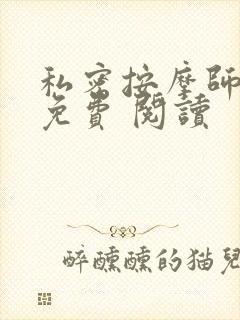 私密按摩師
免費 閱讀
醉醺醺的猫兒